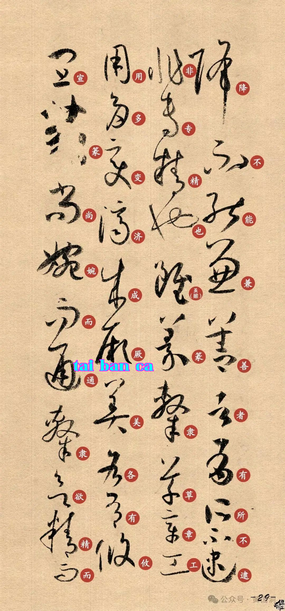 降不能兼善者有所不逮
非专精也虽篆隶草章工
用多变济成厥美各有攸
宜篆尚婉而通隶欲精而
tai ban ca
-29-
公众号